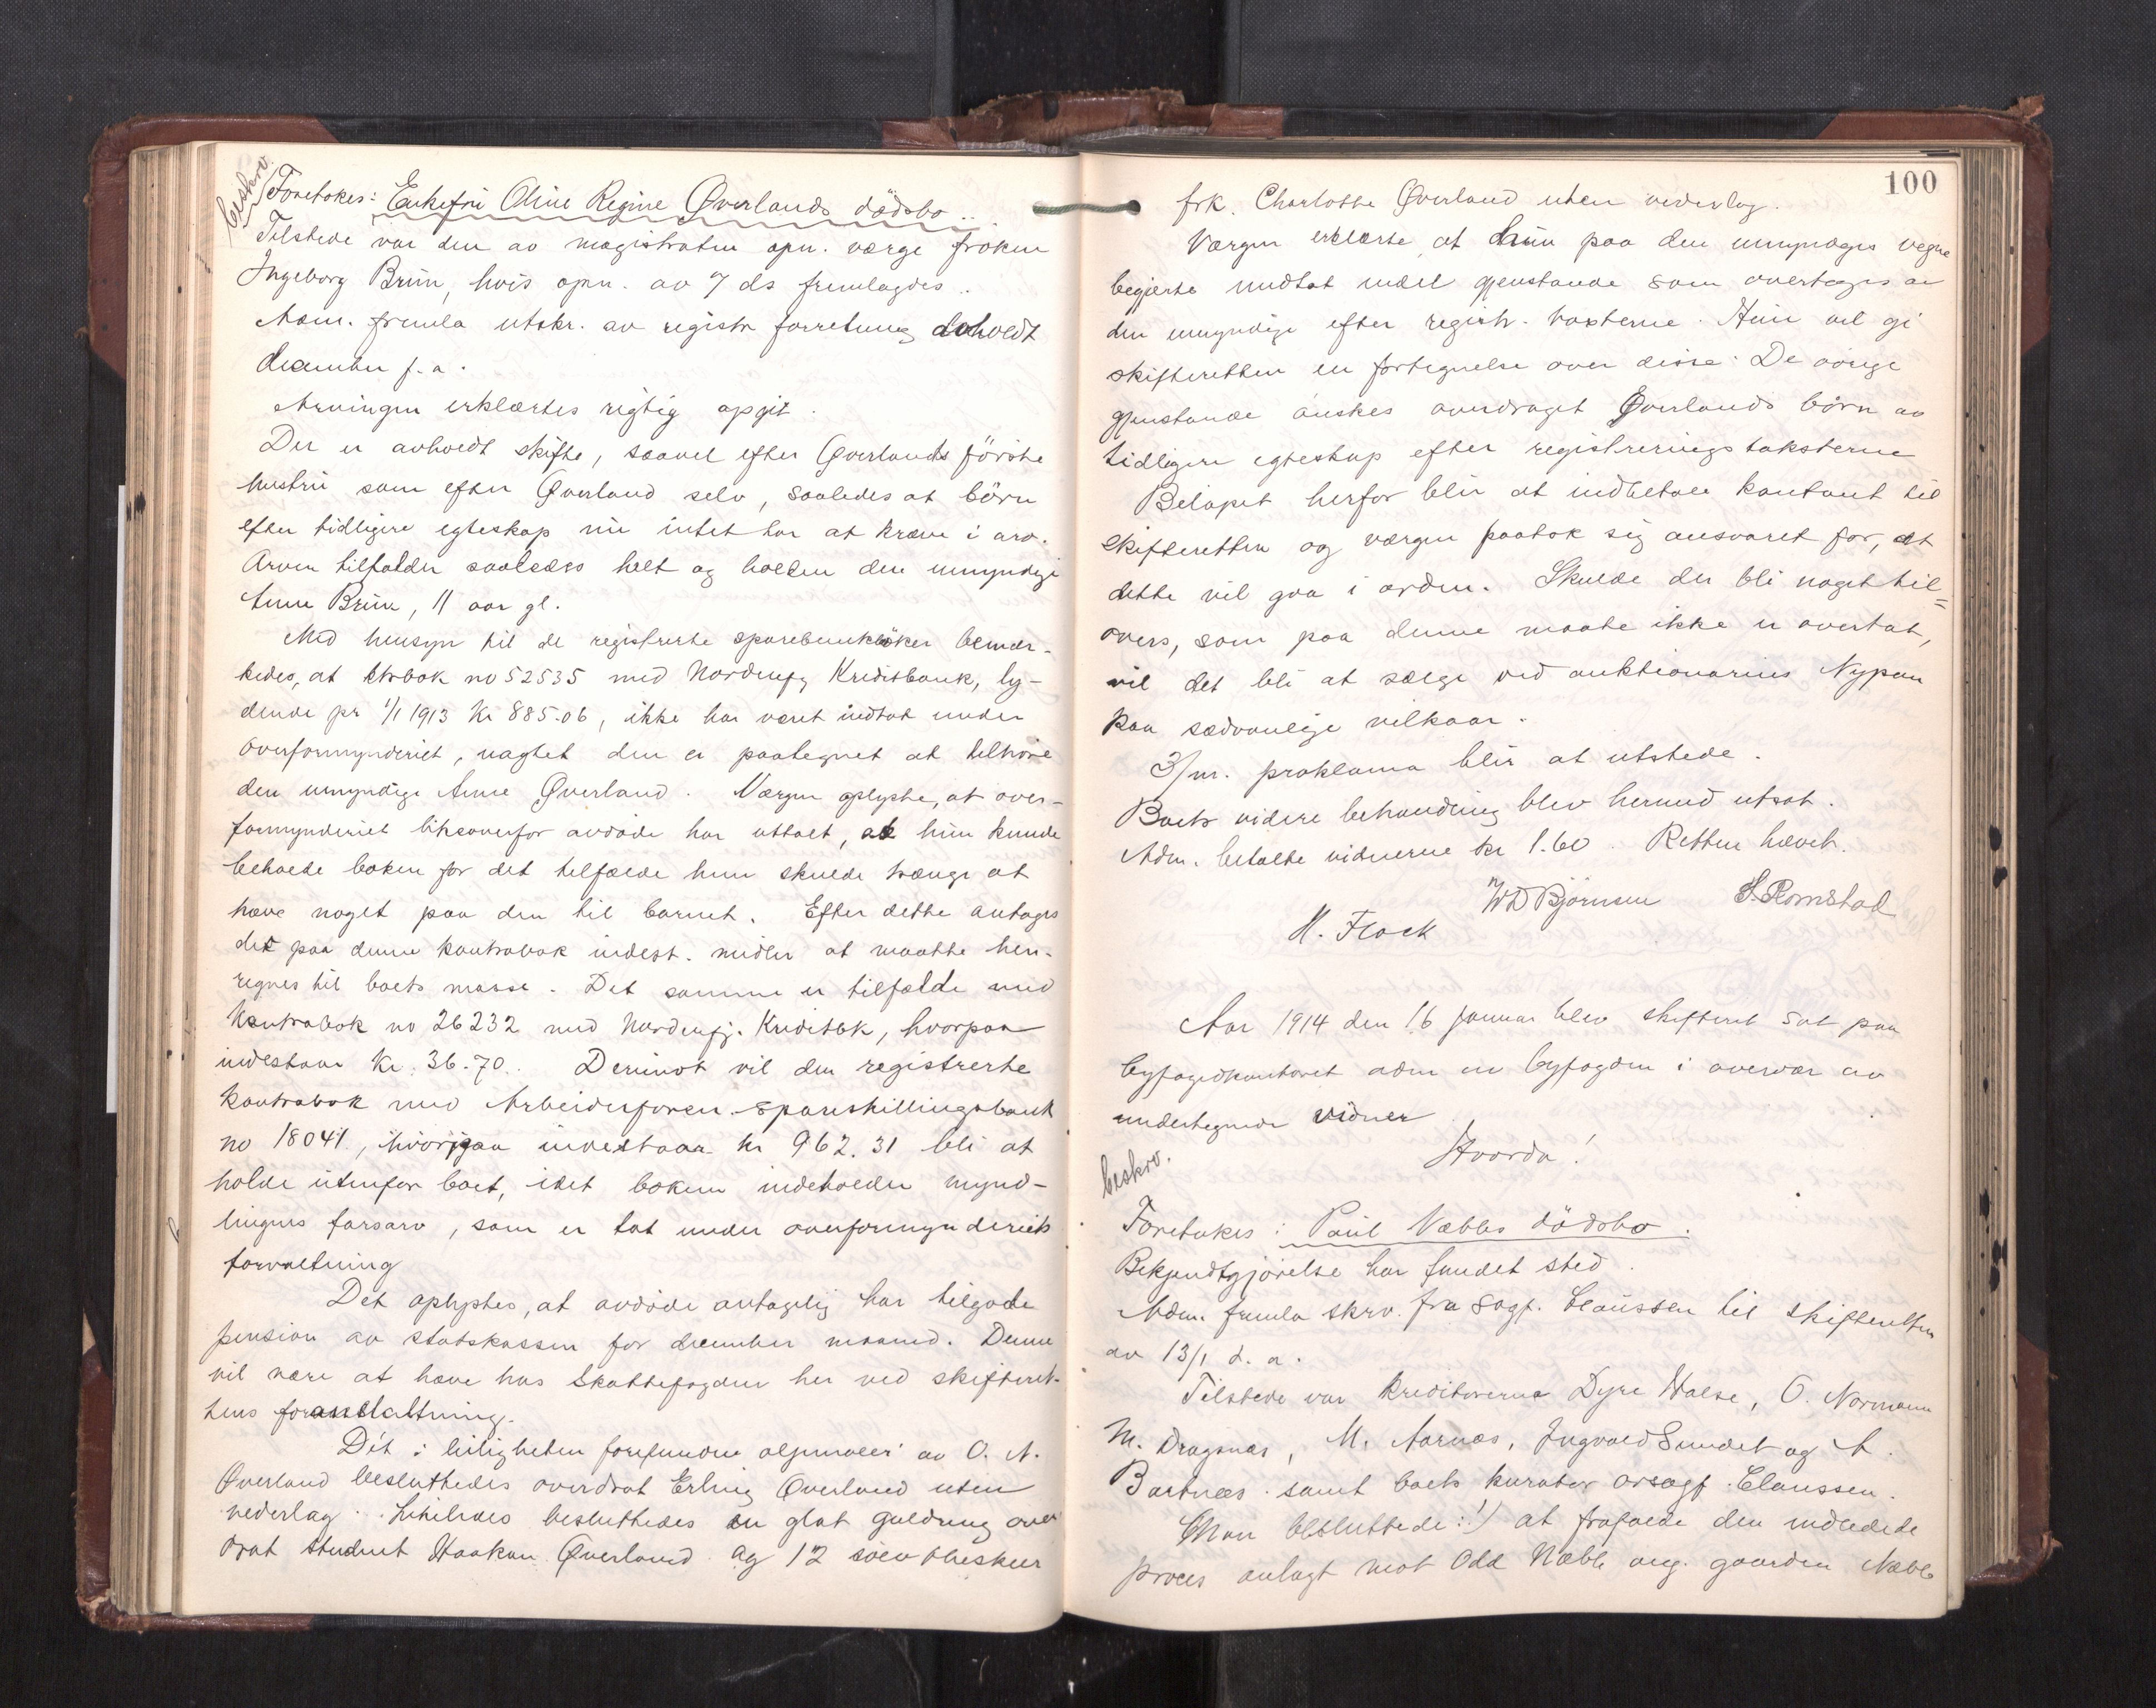 beskrv.
Foretokes: Enkefru Oline Regine Øverlands dödsbo..
Tilstede var den av magistraten opn. verge fröken
Ingeborg Brun, hvis opn. av 7 ds fremlagdes..
Adm. fremla utskr. av registr forretning avholdt
december f. a.
Arvingen erklærtes rigtig opgit.
Der er avholdt skifte, saavel efter Øverlands förste
hustru som efter Øverland selv, saaledes at börn
efter tidligere egteskap nu intet har at kræve i arv.
Arven tilfalder saaledes helt og holden den umyndige
Anne Brun, 11 aar gl.
Med hensyn til de registrerte sparebankböker bemær-
kedes, at ktrbok no 52535 med Nordenfj Kreditbank, ly-
dende pr 1/1 1913 Kr 885.06, ikke har været indtat under
overformynderiet, uagtet den er paategnet at tilhöre
den umyndige Anne Øverland. Vergen oplyste, at over-
formynderiet likeoverfor avdöde har uttalt, at hun kunde
beholde boken for det tilfælde hun skulde trænge at
hæve noget paa den til barnet. Efter dette antages
det paa denne kontrabok indest. midler at maatte hen-
regnes til boets masse. Det samme er tilfælde med
Kontrabok no 26232 med Nordenfj. Kreditbk, hvorpaa
indestaar Kr. 36.70. Derimot vil den registrerte
kontrabok med Arbeiderforen. spareskillingsbank
no 18041, hvorpaa indestaar kr 962.31 bli at
holde utenfor boet, idet boken indeholder mynd-
lingens farsarv, som er tat under overformynderiets
forvaltning
Det oplystes, at avdöde antagelig har tilgode
pension av statskassen for december maaned. Denne
vil være at hæve hos Skattefogden her ved skifteret-
tens foranstaltning.
Det i leiligheten forefundne oljemaleri av O. A.
Øverland besluttedes overdrat Erling Øverland uten
vederlag. Likeledes besluttedes en glat guldring over
drat student Haakon Øverland og 12 sölv theskeer
100
frk. Charlotte Øverland uten vederlag.
Vergen erklærte, at hun paa den umyndiges vegne
begjærte undtat endel gjenstande som overtages av
den umyndige efter registr. taxterne. Hun vil gi
skifteretten en fortegnelse over disse. De övrige
gjenstande önskes overdraget Øverlands börn av
tidligere egteskap efter registrerings taksterne
Belöpet herfor blir at indbetale kontant til
skifteretten og vergen paatok sig ansvaret for, at
dette vil gaa i orden. Skulde der bli noget til=
overs, som paa denne maate ikke er overtat,
vil det bli at sælge ved auktionarius Nypan
paa sædvanlige vilkaar.
3/m. proklama blir at utstede.
Boets videre behandling blev hermed utsat.
Adm. betalte vidnerne kr 1.60. Retten hævet.
WD Björnsen S. Romstad
H. Flock
Aar 1914 den 16 januar blev skifteret sat paa
byfogedkontoret adm av byfogden i overvær av
undertegnede vidner
Hvorda!
beskrv.
Foretokes: Paul Næbbs dödsbo.
Bekjendtgjörelse har fundet sted.
Adm. fremla skrv. fra sagf. Claussen til skifteretten
av 13/1 d. a.
Tilstede var kreditorerne Dyre Halse, O. Normann
M. Dragsnæs, M. Aarnæs, Ingvald Sundet og A.
Bartnæs samt boets kurator orsagf. Claussen.
Man besluttede: 1) at frafalde den indledede
proces anlagt mot Odd Næbb ang. gaarden Næbb